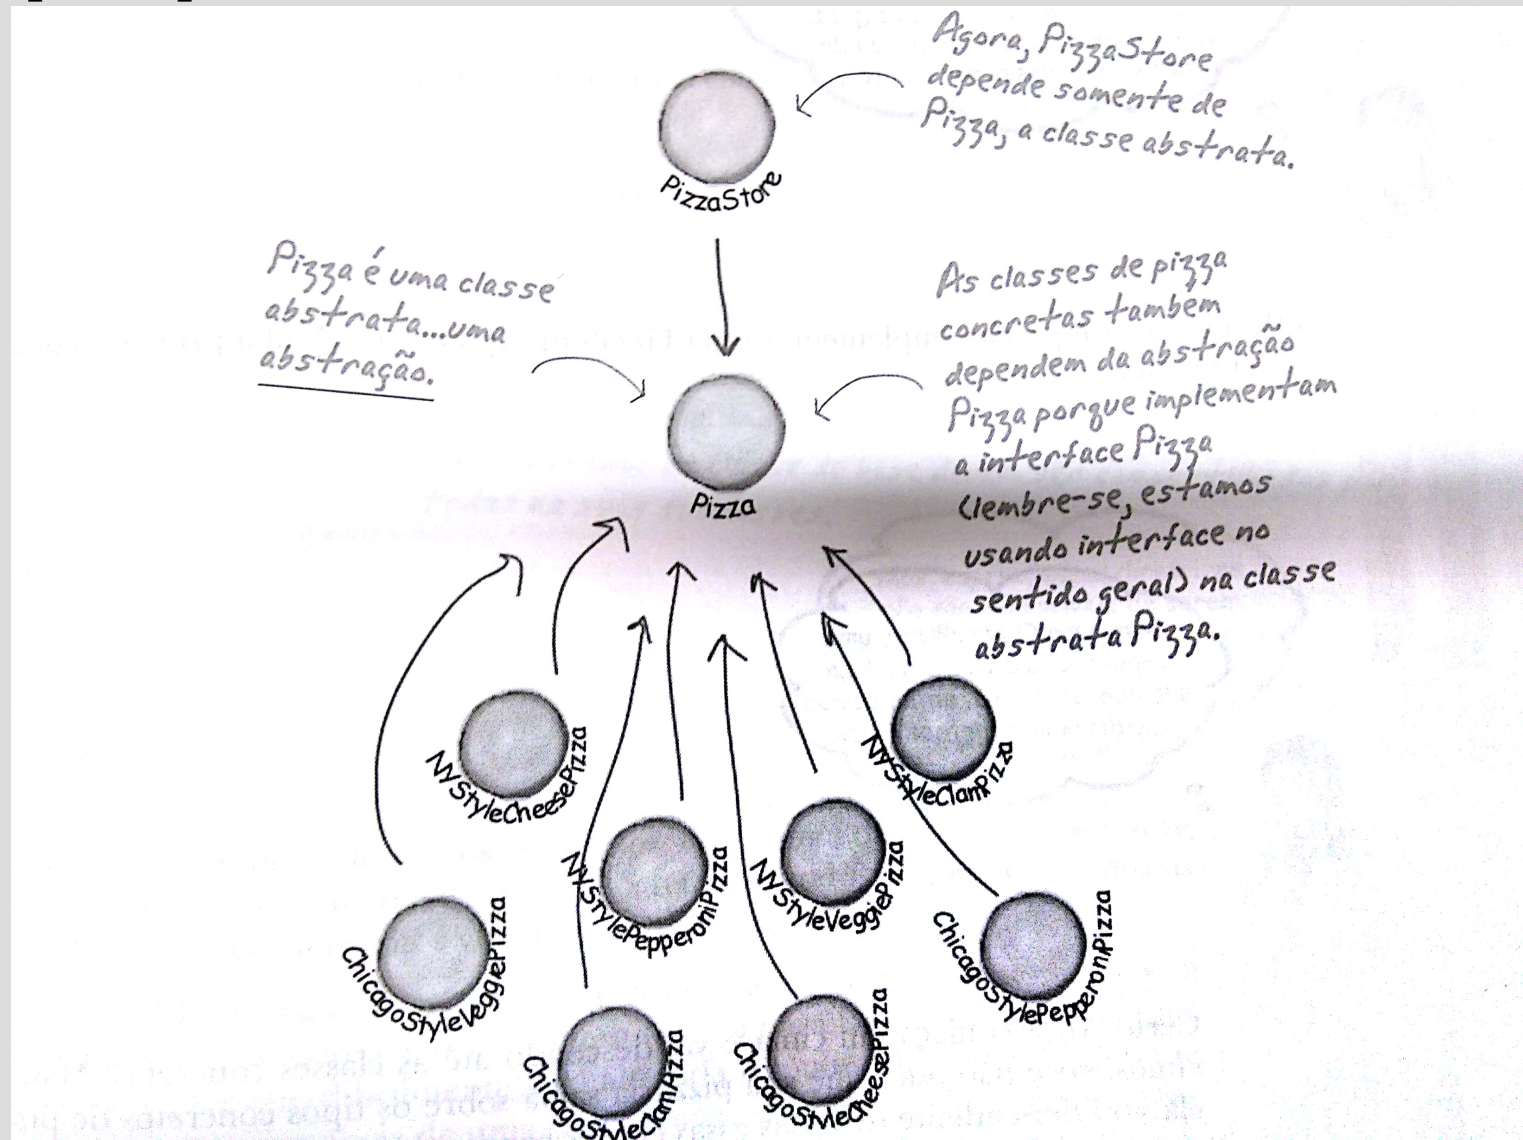 Agora, PizzaStore
depende somente de
Pizza, a classe abstrata.
PizzaStore
Pizza é uma classe
abstrata...uma
abstração.
As classes de pizza
concretas também
dependem da abstração
Pizza porque implementam
a interface Pizza
(lembre-se, estamos
usando interface no
sentido geral) na classe
abstrata Pizza.
Pizza
NYStyleCheesePizza
NYStyleClamPizza
NYStylePepperoniPizza
NYStyleVeggiePizza
ChicagoStyleVeggiePizza
ChicagoStylePepperoniPizza
ChicagoStyleClamPizza
ChicagoStyleCheesePizza